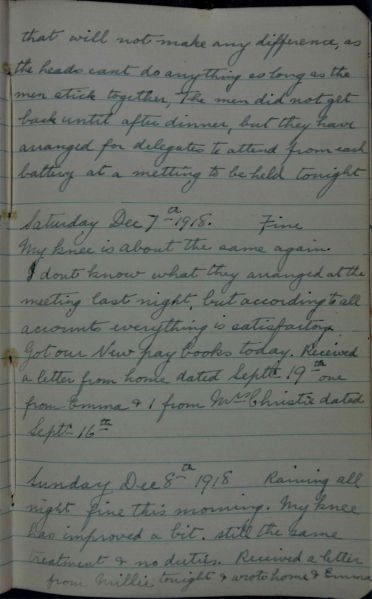 that will not make any difference, as
the heads cant do anything as long as the
men stick together, The men did not get
back until after dinner, but they have
arranged for delegates to attend from each
battery at a metting to be held tonight
Saturday Dec 7th 1918. Fine
My knee is about the same again.
I dont know what they arranged at the
meeting last night, but according to all
accounts everything is satisfactory.
Got our New pay books today. Received
a letter from home dated Septh 19th one
from Emma & 1 from Mrs Christie dated
Septh 16th
Sunday Dec 8th 1918 Raining all
night fine this morning. My knee
has improved a bit. still the same
treatment & no duties. Received a letter
from Millie tonight & wrote home & Emma